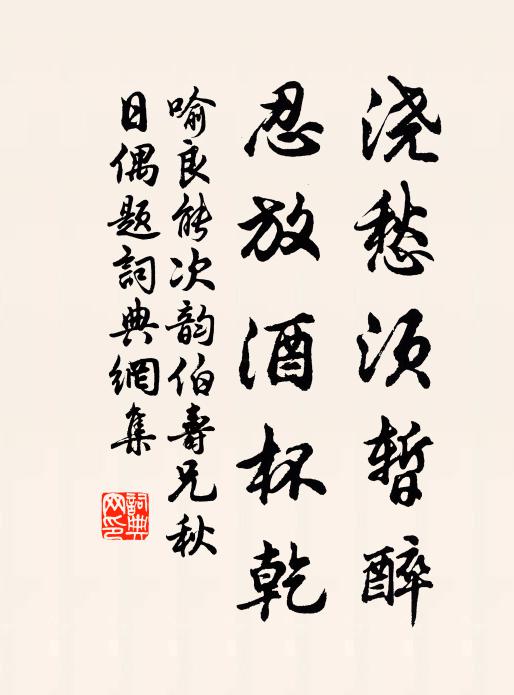 浇愁须暂醉
忍放酒杯乾
喻良能次韵伯壽兄秋
日偶题詞典網集
詞典网印